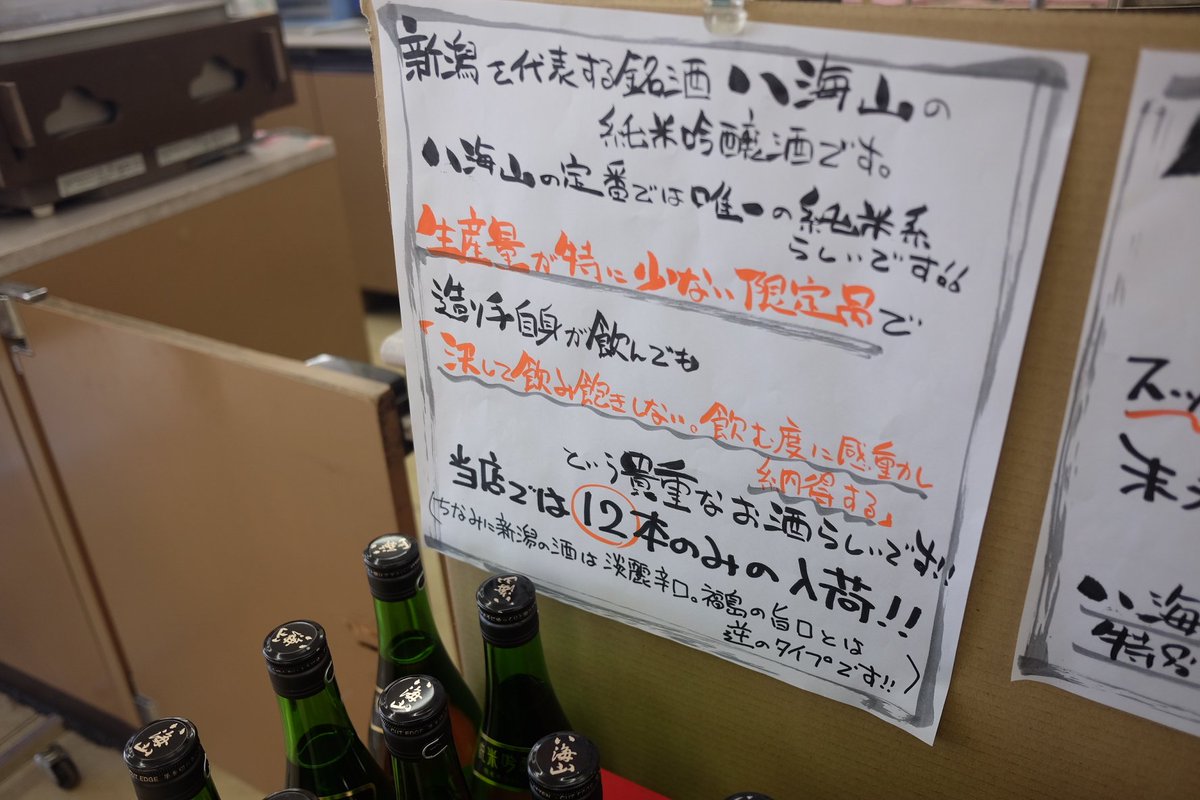 新潟を代表する銘酒 八海山の
純米吟醸酒です。
八海山の定番では唯一の純米系
らしいです!!
生産量が特に少ない限定品で
造り手自身が飲んでも
「決して飲み飽きしない。飲む度に感動かし
納得する」
という貴重なお酒らしいです!!
当店では12本のみの入荷!!
(ちなみに新潟の酒は淡麗辛口。福島の旨口とは
逆のタイプです!!)
八海
特別
八海山
CUT EDGE
八海山